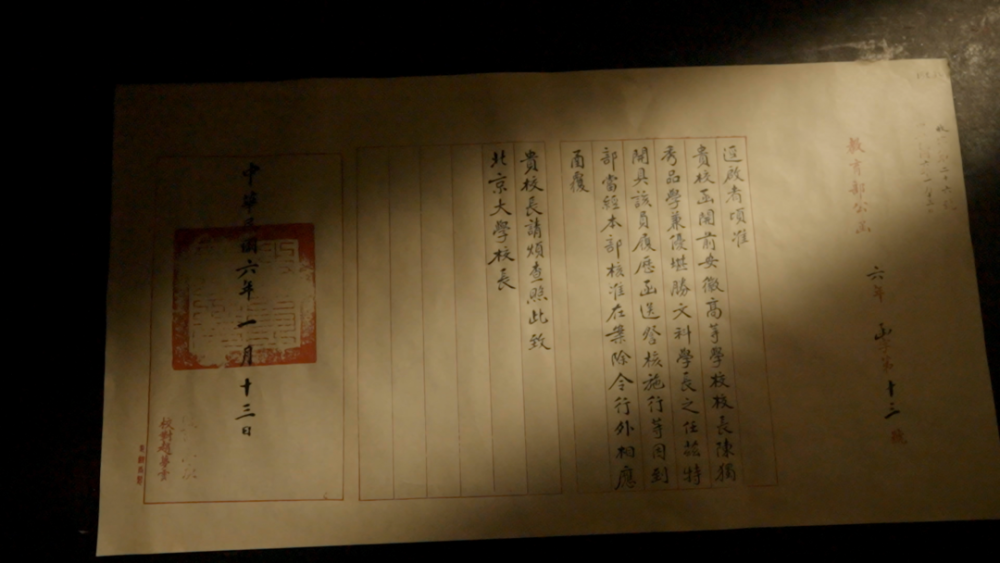 教育部公函
六年 第十三號
逕啟者頃准
貴校函開前安徽高等學校校長陳獨
秀品學兼優堪勝文科學長之任茲特
開具該員履歷函送詧核施行等因到
部當經本部核准在案除令行外相應
函覆
貴校長請煩查照此致
北京大學校長
中華民國六年一月十三日
校對